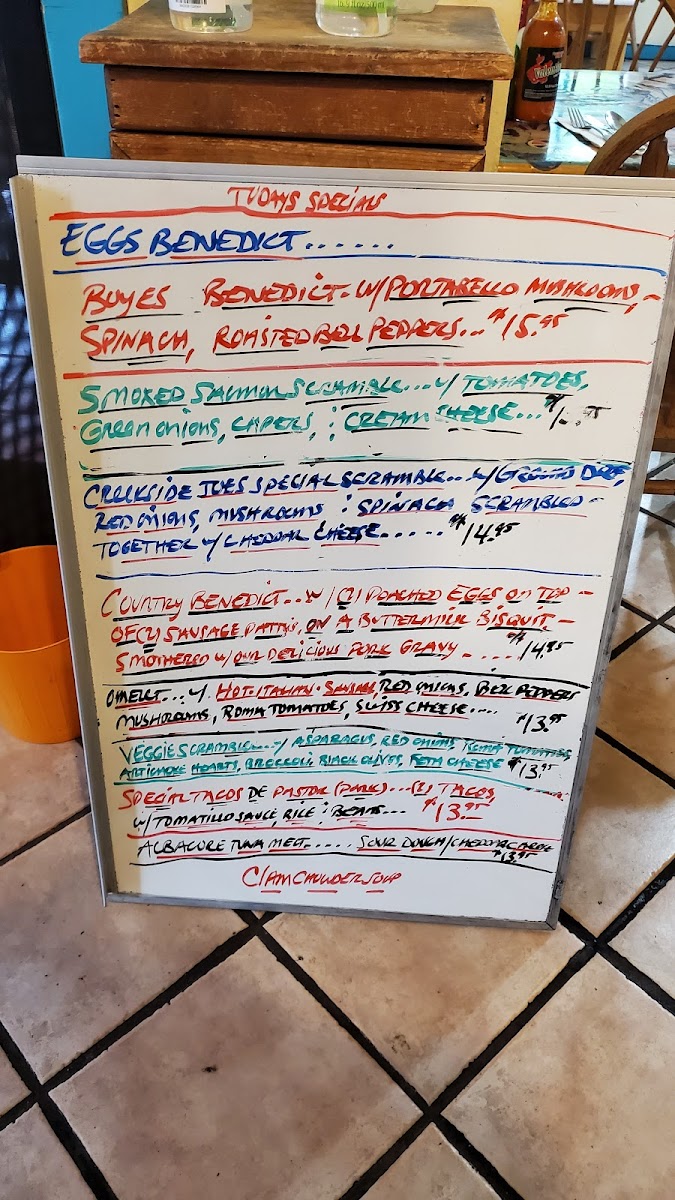 TUDAYS SPECIALS
EGGS BENEDICT......
BUYES BENEDICT. W/ PORTABELLO MUSHROOMS,-
SPINACH, ROASTED BELL PEPPERS... $15.95
SMOKED SALMON SCRAMBLE... W/ TOMATOES,
GREEN ONIONS, CAPERS, : CREAM CHEESE...
CREEKSIDE JOES SPECIAL SCRAMBLE... W/ GROUND BEEF,
RED ONIONS, MUSHROOMS : SPINACH SCRAMBLED -
TOGETHER W/ CHEDDAR CHEESE...... $14.95
COUNTRY BENEDICT... W/ (2) POACHED EGGS ON TOP -
OF (2) SAUSAGE PATTYS, ON A BUTTERMILK BISQUIT, -
SMOTHERED W/ OUR DELICIOUS PORK GRAVY - .... $14.95
OMELET... W/ HOT-ITALIAN-SAUSAGE, RED ONIONS, BELL PEPPERS
MUSHROOMS, ROMA TOMATOES, SWISS CHEESE.... $13.95
VEGGIE SCRAMBLE... W/ ASPARAGUS, RED ONIONS, ROMA TOMATOES,
ARTICHOKE HEARTS, BROCCOLI, BLACK OLIVES, FETA CHEESE $13.95
SPECIAL TACOS DE PASTOR (PORK)... (2) TACOS,
W/ TOMATILLO SAUCE, RICE : BEANS... $13.95
ALBACORE TUNA MELT..... SOUR DOUGH/CHEDDAR CHEESE
$13.95
CLAM CHOWDER SOUP